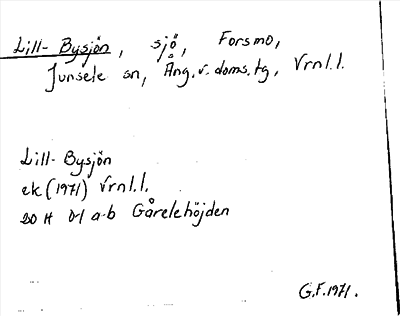 Lill-Bysjön, sjö, Forsmo,
Junsele sn, Ång. v. doms. tg, Vrnl.l.
Lill-Bysjön
ek (1971) Vrnl.l.
20 H 0-1 a-b Gårelehöjden
G.F. 1971.